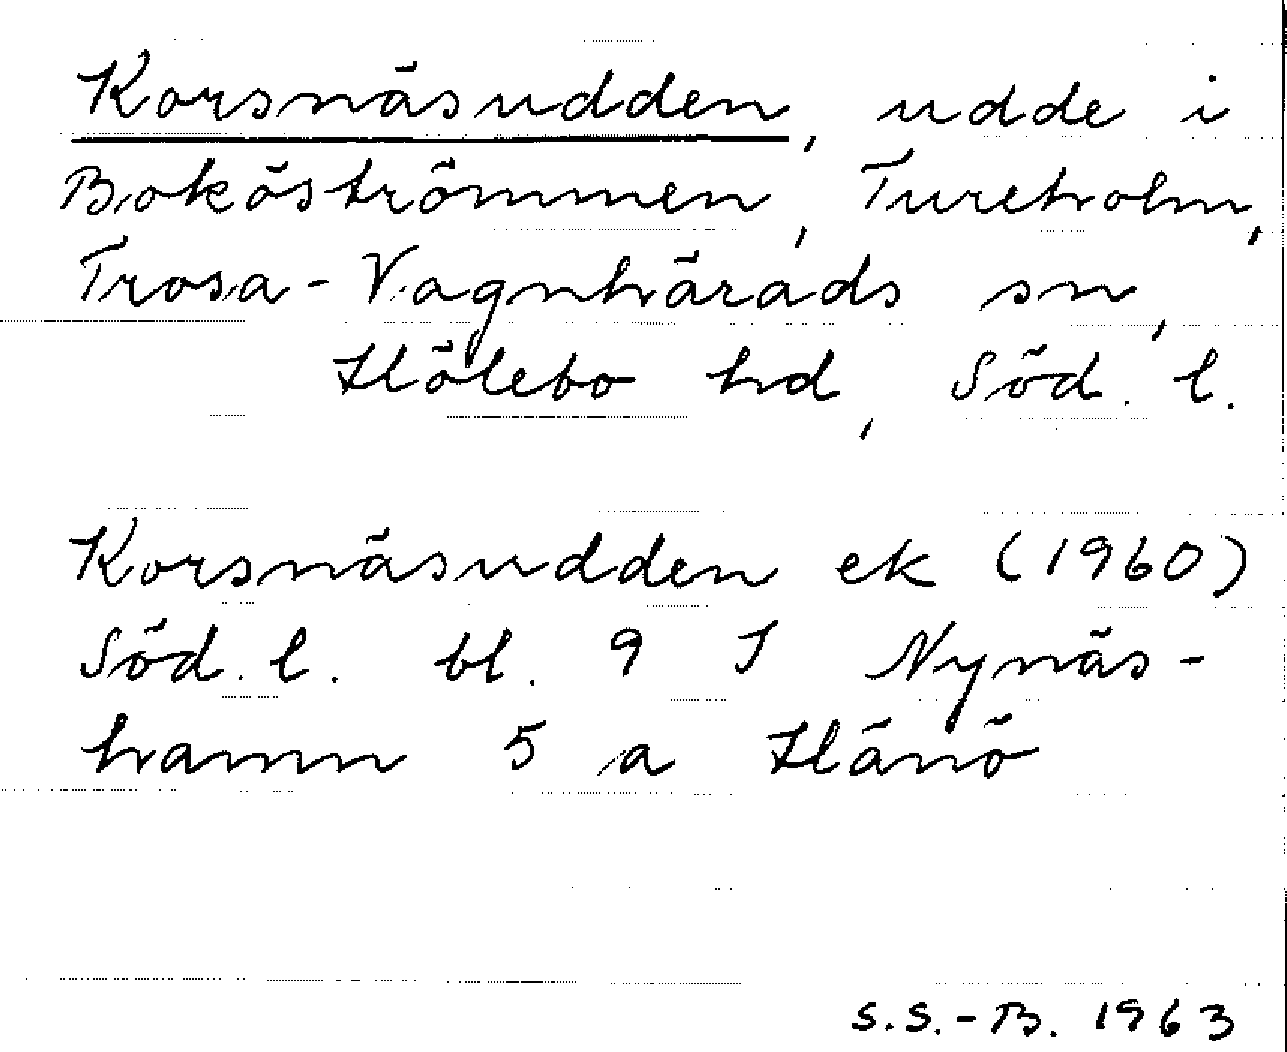 Korsnäsudden, udde i
Boköströmmen, Tureholm,
Trosa-Vagnhärads sn,
Hölebo hd, Söd. l.
Korsnäsudden ek (1960)
Söd. l. bl. 9 I Nynäs-
hamn 5 a Hånö
S.S.-B. 1963